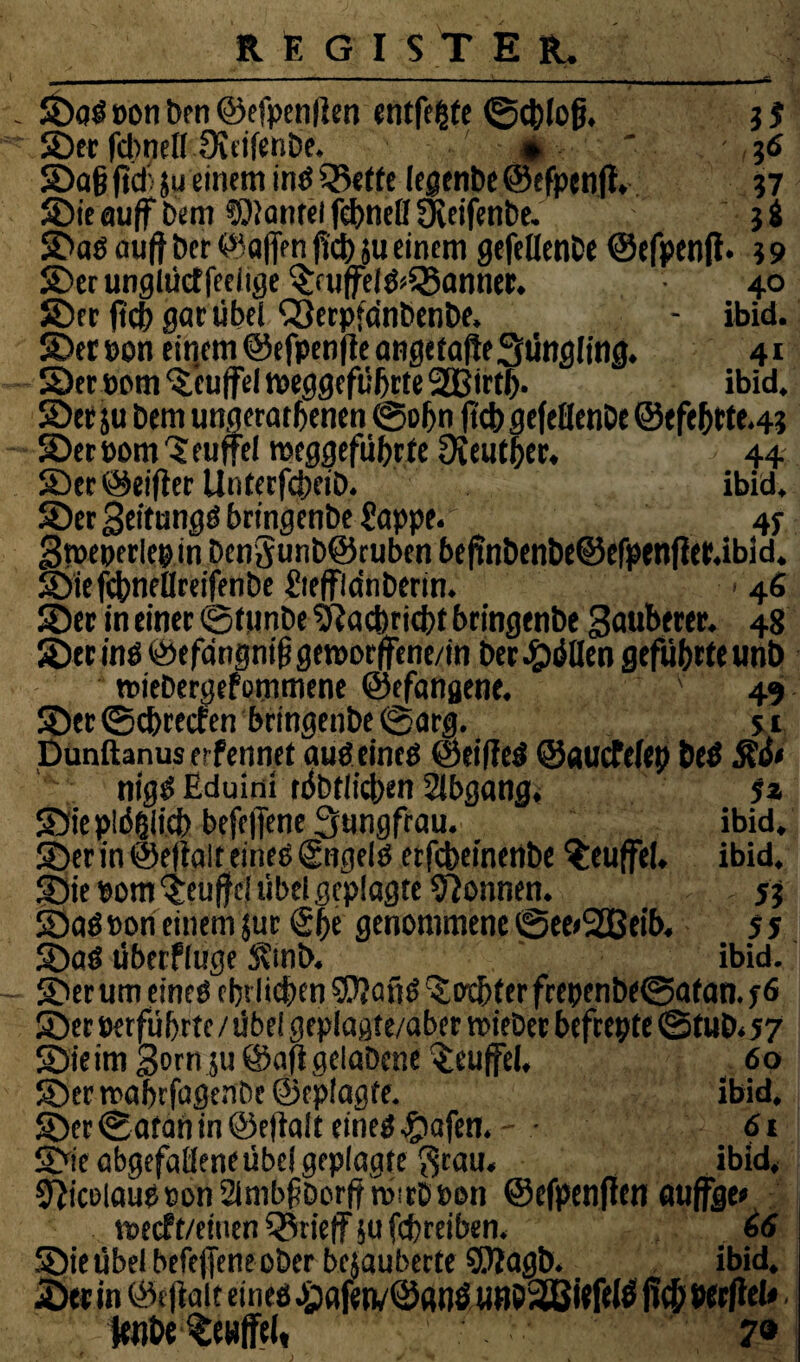 REGISTER.
Das von den Gespensten entsetzte Schloß. 35
Der schnell Reisende. 36
Daß sich zu einem ins Bette legende Gespenst. 37
Die auff dem Mantel schnell Reisende. 38
Das auff der Gassen sich zu einem gesellende Gespenst. 39
Der unglückseelige Teuffels-Banner. 40
Der sich gar übel Verpfändende. ibid.
Der von einem Gespenste angetaste Jüngling. 41
Der vom Teuffel weggeführte Wirth. ibid.
Der zu dem ungerathenen Sohn sich gesellende Gefehrte. 43
Der vom Teuffel weggeführte Reuther. 44
Der Geister Unterscheid. ibid.
Der Zeitungs bringende Lappe. 45
Zweyerley in den Fund-Gruben befindende Gespenster. ibid.
Die schnellreisende Liefländerin. 46
Der in einer Stunde Nachricht bringende Zauberer. 48
Der ins Gefängniß geworffene/in der Höllen geführte und
wiedergekommene Gefangene. 49
Der Schrecken bringende Sarg. 51
Dunstanus erkennet aus eines Geistes Gauckeley des Kö-
nigs Eduini tödtlichen Abgang. 52
Die plötzlich besessene Jungfrau. ibid.
Der in Gestalt eines Engels erscheinende Teuffel. ibid.
Die vom Teuffel übel geplagte Nonnen. 53
Das von einem zur Ehe genommene See-Weib. 55
Das überkluge Kind. ibid.
Der um eines ehrlichen Mañs Tochter freyende Satan. 56
Der verführte/übel geplagte/aber wieder befreyte Stud. 57
Die im Zorn zu Gast geladene Teuffel. 60
Der wahrsagende Geplagte. ibid.
Der Satan in Gestalt eines Hasen. 61
Die abgefallene übel geplagte Frau. ibid.
Nicolaus von Ambßdorff wird von Gespensten auffge-
weckt/einen Brieff zu schreiben. 66
Die übel besessene oder bezauberte Magd. ibid.
Der in Gestalt eines Hasen/Gans und Wiesels sich verstel-
lende Teuffel. 70